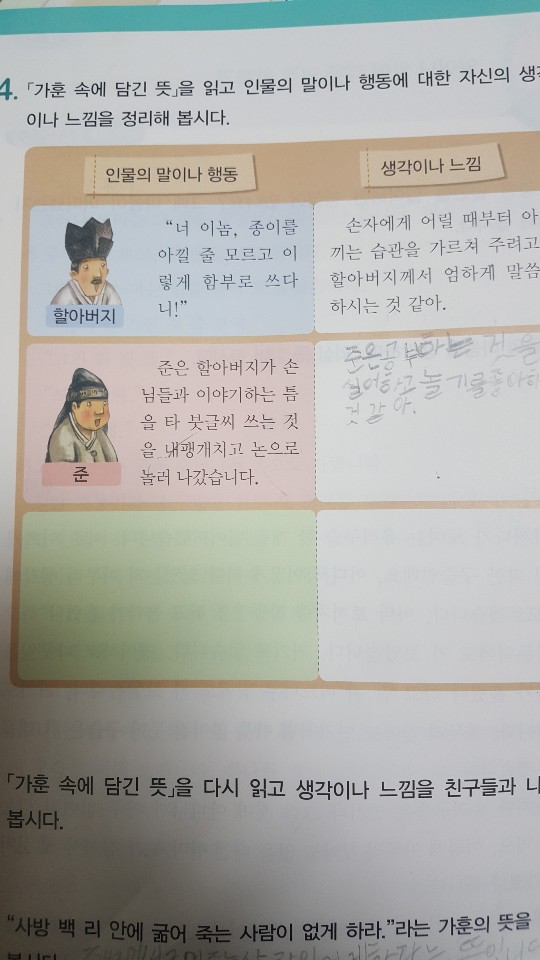 4. 「가훈 속에 담긴 뜻」을 읽고 인물의 말이나 행동에 대한 자신의 생각
이나 느낌을 정리해 봅시다.
인물의 말이나 행동
생각이나 느낌
“너 이놈, 종이를
아낄 줄 모르고 이
렇게 함부로 쓰다
니!”
할아버지
손자에게 어릴 때부터 아
끼는 습관을 가르쳐 주려고
할아버지께서 엄하게 말씀
하시는 것 같아.
준은 할아버지가 손
님들과 이야기하는 틈
을 타 붓글씨 쓰는 것
을 내팽개치고 논으로
놀러 나갔습니다.
준
준은공부하는 것을
싫어하고 놀기를좋아하
것 같아.
「가훈 속에 담긴 뜻」을 다시 읽고 생각이나 느낌을 친구들과 나
봅시다.
“사방 백 리 안에 굶어 죽는 사람이 없게 하라.”라는 가훈의 뜻을
봅시다.